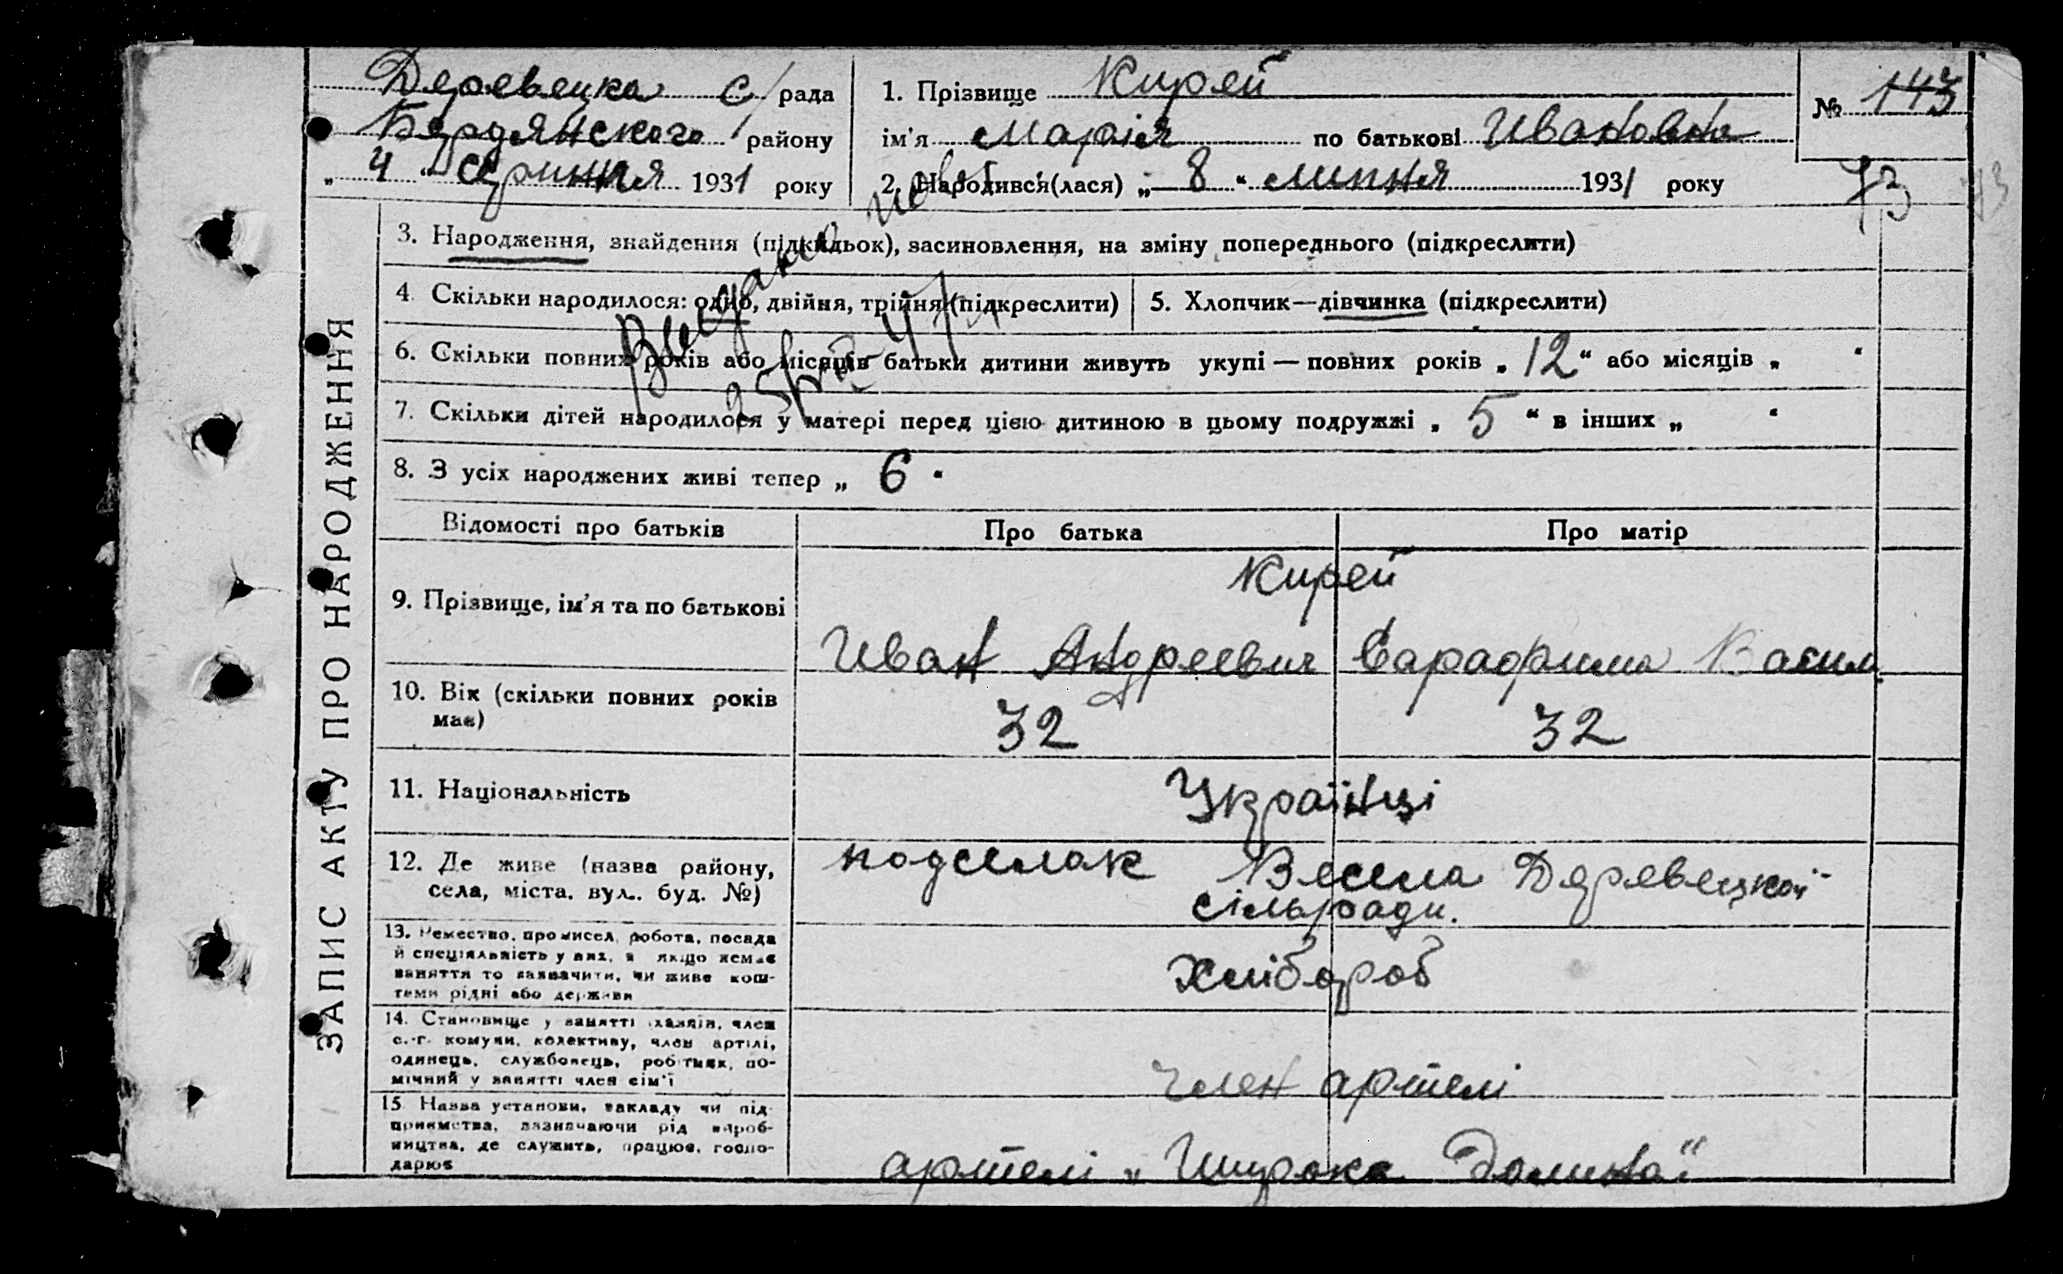 Деревецка с/рада
Бердянского району
„4“ серпня 1931 року
1. Прізвище Кирей
ім’я Марія по батькові Ивановна
2. Народився(лася) „8“ липня 1931 року
№ 143
73
73
ЗАПИС АКТУ ПРО НАРОДЖЕННЯ
3. Народження, знайдення (підкидьок), засиновлення, на зміну попереднього (підкреслити)
4. Скільки народилося: одно, двійня, трійня (підкреслити)
5. Хлопчик—дівчинка (підкреслити)
6. Скільки повних років або місяців батьки дитини живуть укупі — повних років „12“ або місяців „ “
7. Скільки дітей народилося у матері перед цією дитиною в цьому подружжі „5“ в інших „ “
8. З усіх народжених живі тепер „6“
Відомості про батьків
Про батька
Про матір
9. Прізвище, ім’я та по батькові
Кирей
Иван Андреевич
Сарафима Васил.
10. Вік (скільки повних років
має)
32
32
11. Національність
Українці
12. Де живе (назва району,
села, міста, вул., буд. №)
подселок Весела Деревецкой
сільради.
13. Ремество, промисел, робота, посада
й спеціяльність у них, а якщо немає
заняття то зазначити, чи живе кош-
тами рідні або держави
Хлібороб
14. Становище у занятті хазяїн, член
с.-г. комуни, колективу, член артілі,
одинець, службовець, робітник, по-
мічний у занятті член сім’ї
член артелі
15. Назва установи, закладу чи під-
приємства, зазначаючи рід вироб-
ництва, де служить, працює, госпо-
дарює
артелі „Широка Долина“